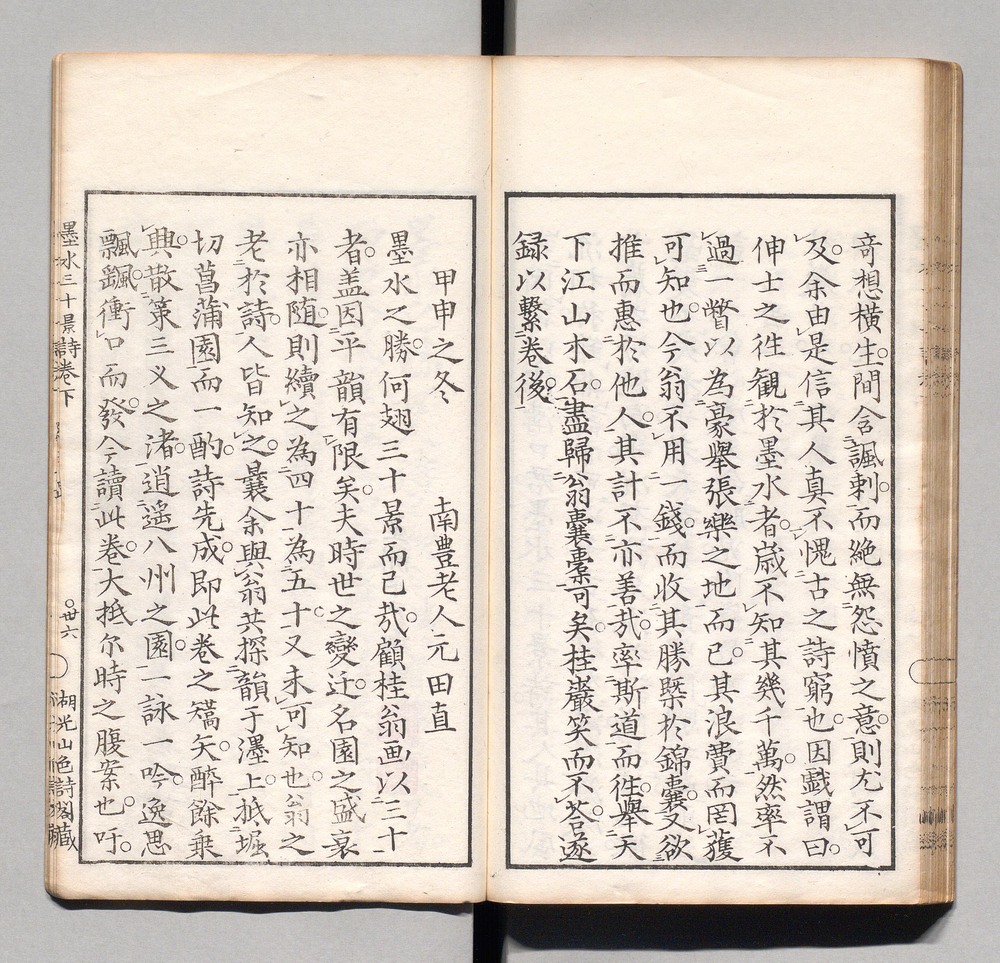 奇想橫生間含諷刺而絶無怨憤之意則尤不可
及余由是信其人真不愧古之詩窮也因戲謂曰
伸士之徃観於墨水者歳不知其幾千萬然率不
過一瞥以為豪舉張樂之地而已其浪費而罔獲
可知也今翁不用一錢而收其勝槩於錦囊又欲
推而惠於他人其計不亦善哉率斯道而徃舉天
下江山木石盡歸翁囊橐可矣桂巖笑而不荅遂
録以繫卷後
甲申之冬　南豊老人元田直
墨水之勝何翅三十景而已哉顧桂翁画以三十
者盖因平韻有限矣夫時世之變迁名園之盛衰
亦相随則續之為四十為五十又未可知也翁之
老於詩人皆知之曩余與翁共探韻于濹上抵堀
切菖蒲園而一酌詩先成即此卷之矯矢醉餘乗
興散策三义之渚逍遥八州之園一詠一吟逸思
飄飄衝口而發今讀此卷大抵尔時之腹案也吁
墨水三十景詩卷下
丗六
湖光山色詩閣藏